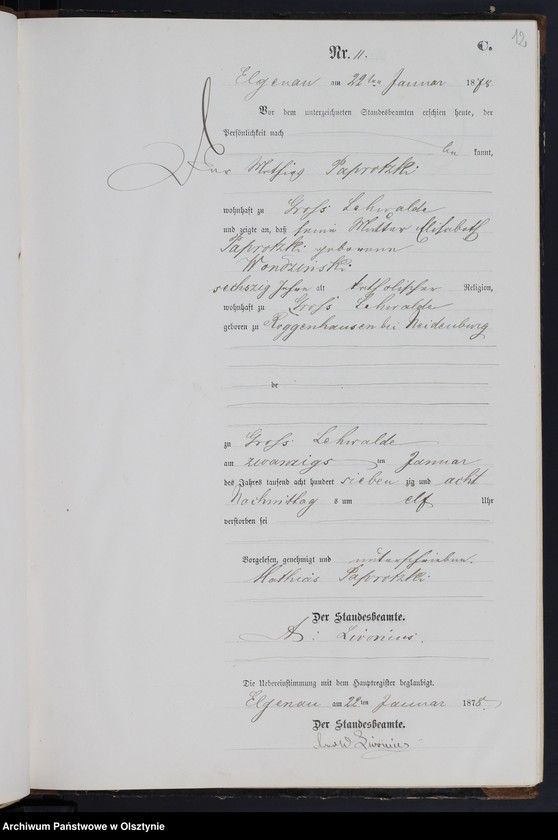 12
C.
Nr. 11.
Elgenau am 22ten Januar 1878
Vor dem unterzeichneten Standesbeamten erschien heute, der
Persönlichkeit nach
be kannt,
der Mathias Paprotzki
wohnhaft zu Groß Lehwalde
und zeigte an, daß seine Mutter Elisabeth
Paprotzki geborene
Wondzinski
sechszig Jahre alt katholischer Religion,
wohnhaft zu Groß Lehwalde
geboren zu Roggenhausen bei Neidenburg
de
zu Groß Lehwalde
am zwanzigs ten Januar
des Jahres tausend acht hundert sieben zig und acht
Nachmittag s um elf Uhr
verstorben sei
Vorgelesen, genehmigt und unterschrieben.
Mathias Paprotzki
Der Standesbeamte.
Livonius.
Die Uebereinstimmung mit dem Hauptregister beglaubigt.
Elgenau am 22ten Januar 1878.
Der Standesbeamte.
Livonius
Archiwum Państwowe w Olsztynie